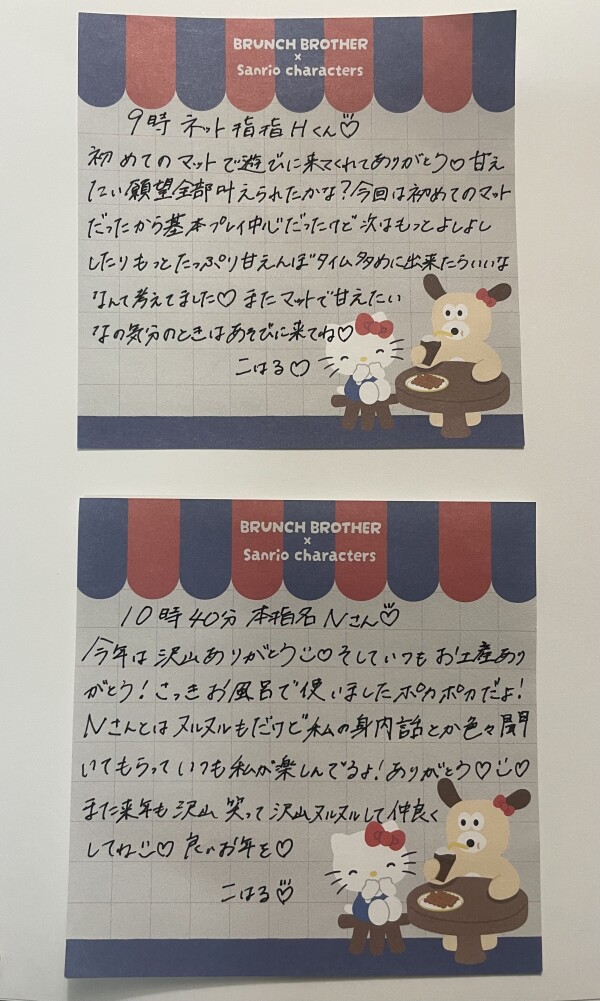 BRUNCH BROTHER
×
Sanrio characters
9時 ネット指指 Hくん♡
初めてのマットで遊びに来マくれてありがとう♡甘え
たい願望全部叶えられたかな?今回は初めてのマット
だったから基本プレイ中心だったけど次はもっとよしよし
したりもっとたっぷり甘えんぼタイム多めに出来たらいいな
なんて考えてました♡ またマットで甘えたい
なの気分のときはあそびに来てね♡
こはる♡
BRUNCH BROTHER
×
Sanrio characters
10時40分 本指名 Nさん♡
今年は沢山ありがとう♡そしていつもお土産あり
がとう!さっきお風呂で使いましたポカポカだよ!
Nさんとはヌルヌルもだけど私の身内話とか色々聞
いてもらっていつも私が楽しんでるよ!ありがとう♡♡
また来年も沢山笑って沢山ヌルヌルして仲良く
してね♡ 良いお年を♡
こはる♡